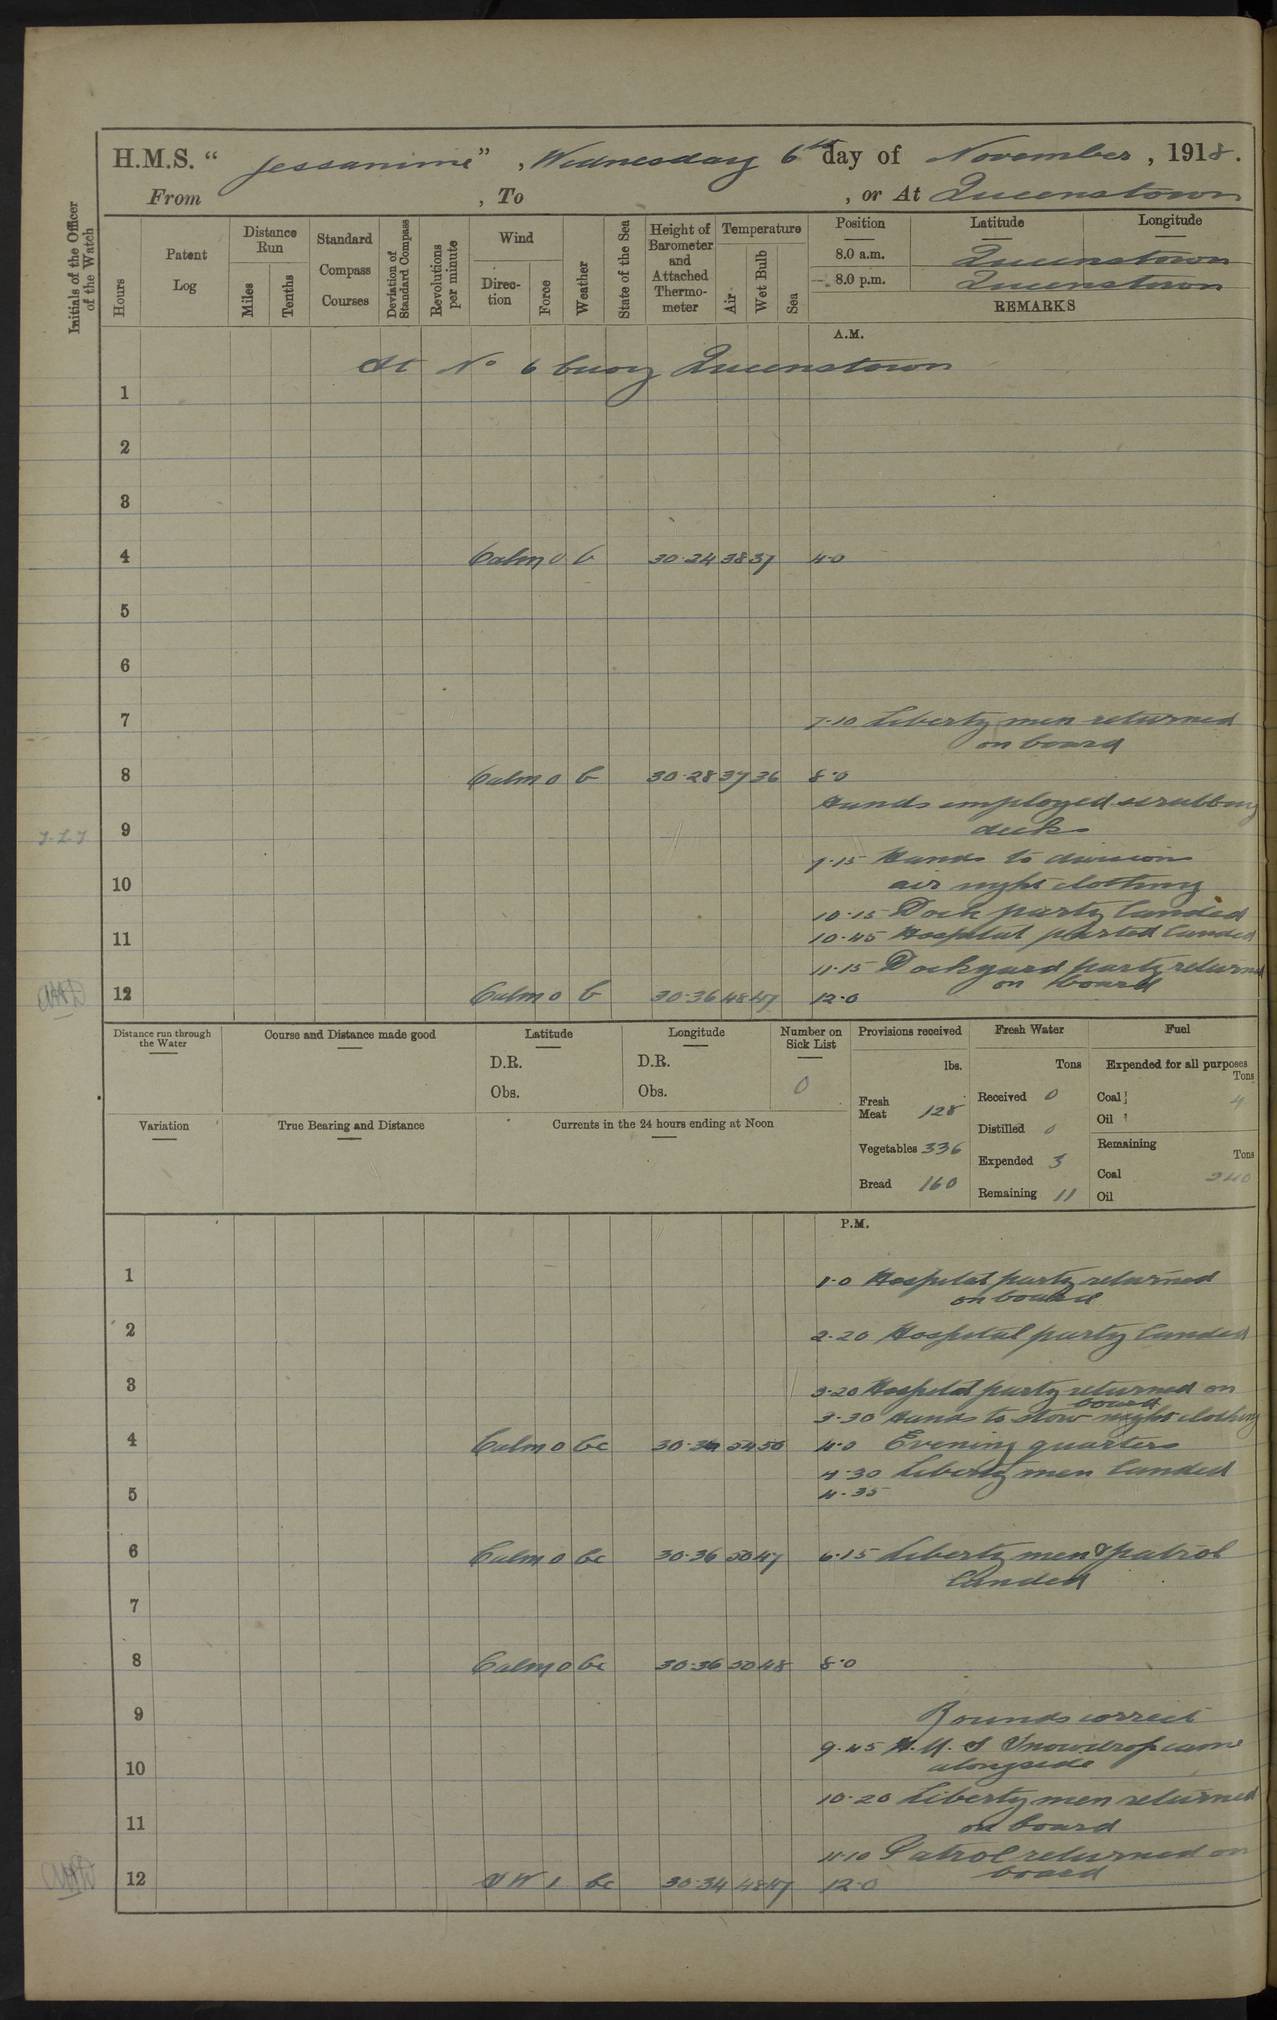 H.M.S. “Jessamine”, Wednesday 6th day of November, 1918.
From , To , or At Queenstown
Initials of the Officer of the Watch
Hours
Patent Log
Distance Run
Miles
Tenths
Standard Compass Courses
Deviation of Standard Compass
Revolutions per minute
Wind
Direction
Force
Weather
State of the Sea
Height of Barometer and Attached Thermometer
Temperature
Air
Wet Bulb
Sea
Position Latitude Longitude
8.0 a.m. Queenstown
8.0 p.m. Queenstown
REMARKS
A.M.
At No 6 buoy Queenstown
1
2
3
4 Calm 0 b 30.24 38 37 4.0
5
6
7 7.10 Liberty men returned
on board
8 Calm 0 b 30.28 37 36 8.0
Hands employed scrubbing
9 decks
9.15 Hands to division
10 air night clothing
10.15 Dock party landed
11 10.45 Hospital parted landed
11.15 Dockyard party returned
on board
12 Calm 0 b 30.36 48 47 12.0
Distance run through the Water
Course and Distance made good
Latitude
D.R.
Obs.
Longitude
D.R.
Obs.
Number on Sick List
0
Provisions received
lbs.
Fresh Meat 128
Vegetables 336
Bread 160
Fresh Water
Tons
Received 0
Distilled 0
Expended 3
Remaining 11
Fuel
Expended for all purposes
Tons
Coal 4
Oil
Remaining
Tons
Coal 240
Oil
Variation
True Bearing and Distance
Currents in the 24 hours ending at Noon
P.M.
1 1.0 Hospital party returned
on board
2 2.20 Hospital party landed
3 3.20 Hospital party returned on
board
3.30 Hands to stow night clothing
4 Calm 0 bc 54 50 4.0 Evening quarters
4.30 Liberty men landed
5 4.35
6 Calm 0 bc 30.36 50 47 6.15 Liberty men & patrol
landed
7
8 Calm 0 bc 30.36 50 48 8.0
9 Rounds correct
9.45 H.M.S Snowdrop came
10 alongside
10.20 Liberty men returned
11 on board
11.10 Patrol returned on
board
12 1 bc 30.34 48 47 12.0